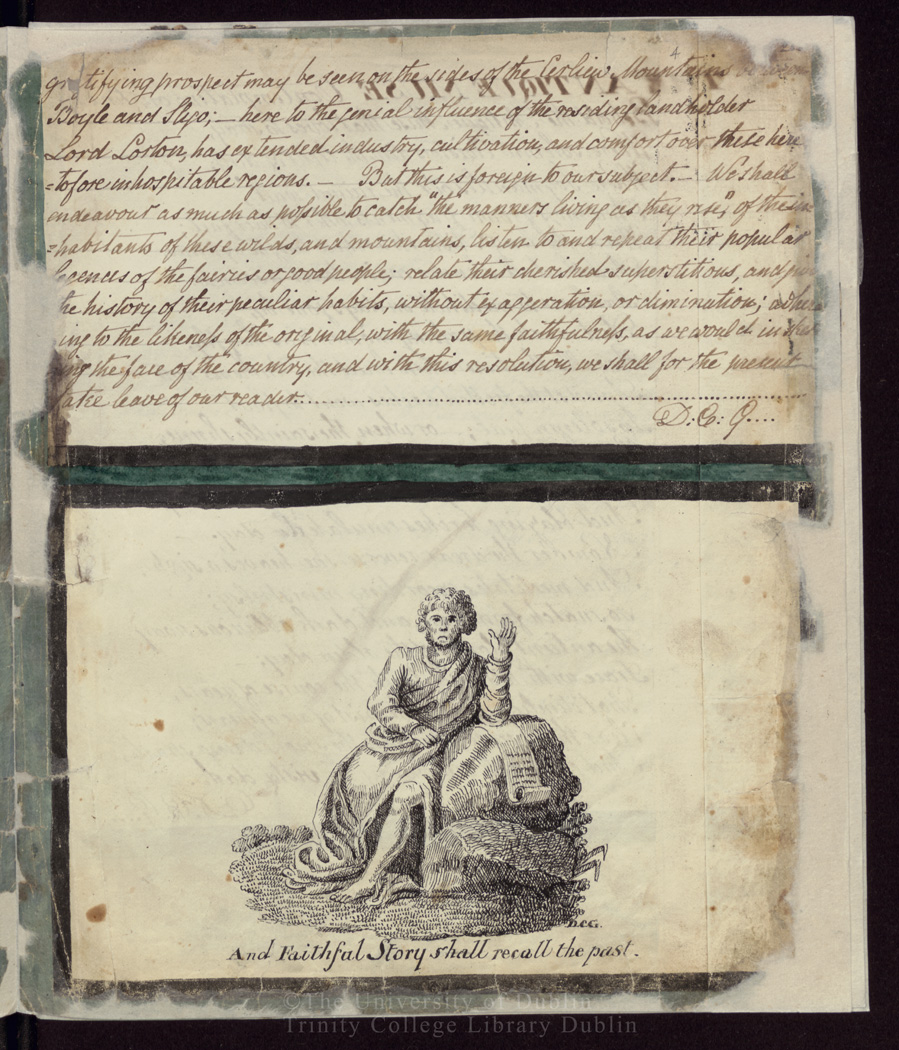 gratifying prospect may be seen on the sides of the Corliew Mountains
Boyle and Sligo; — here to the genial influence of the residing landholder
Lord Lorton, has extended industry, cultivation, and comfort over these here
=tofore inhospitable regions. — But this is foreign to our subject. — We shall
endeavour as much as possible to catch "the manners living as they rise," of the in
=habitants of these wilds, and mountains, listen to and repeat their popular
legends of the fairies or good people; relate their cherished superstitions, and
the history of their peculiar habits, without exaggeration, or diminution; adher
ing to the likeness of the original, with the same faithfulness, as we would in
ing the face of the country, and with this resolution, we shall for the present
take leave of our reader.
D. C. G....
D.C.G.
And Faithful Story shall recall the past.
©The University of Dublin
Trinity College Library Dublin